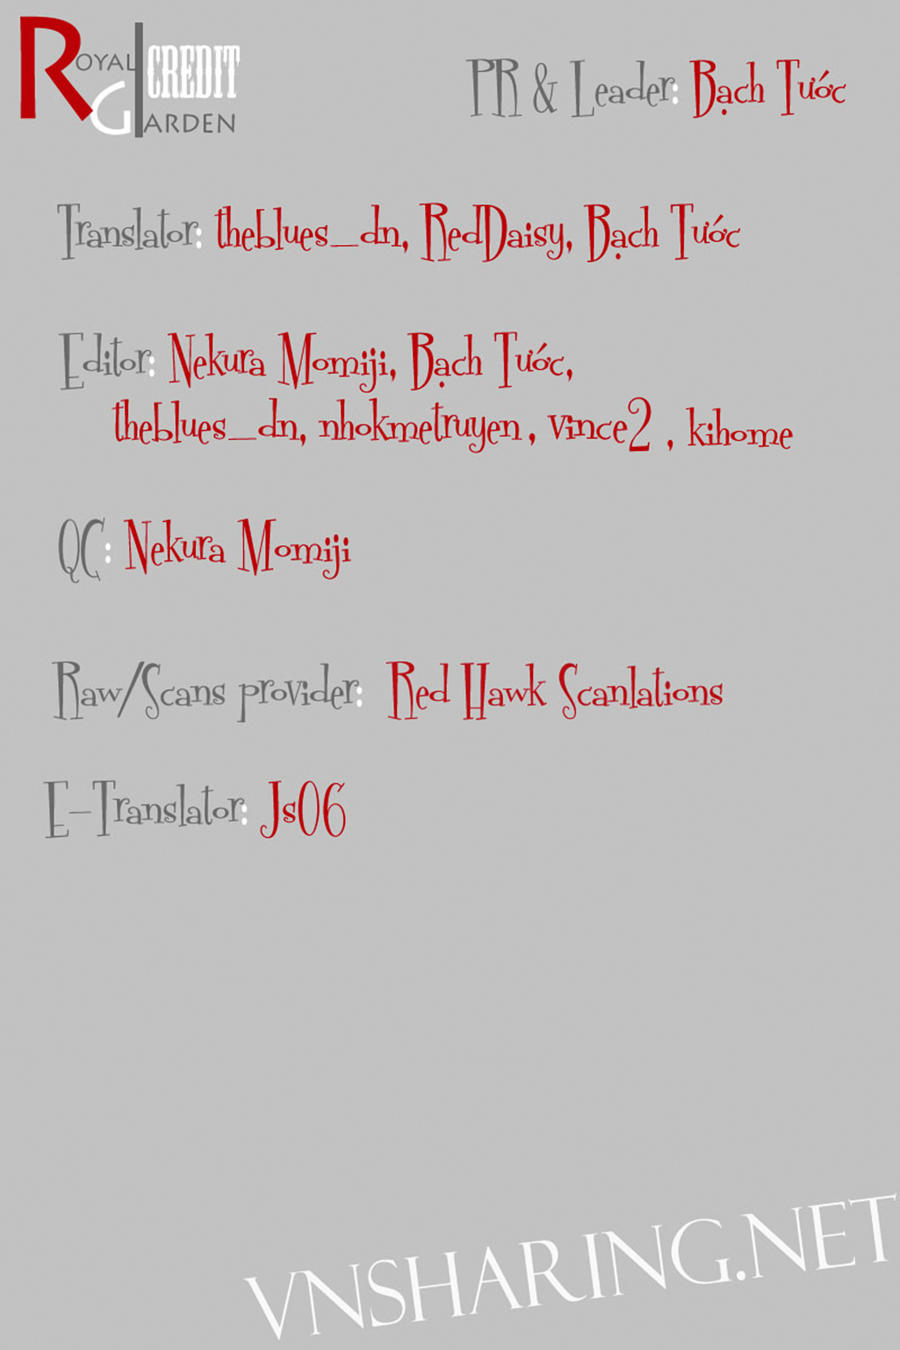 ROYAL CREDIT
GARDEN
PR & Leader: Bạch Tước
Translator: theblues_dn, RedDaisy, Bạch Tước
Editor: Nekura Momiji, Bạch Tước,
theblues_dn, nhokmetruyen, vince2 , kihome
QC: Nekura Momiji
Raw/Scans provider: Red Hawk Scanlations
E-Translator: Js06
VNSHARING.NET